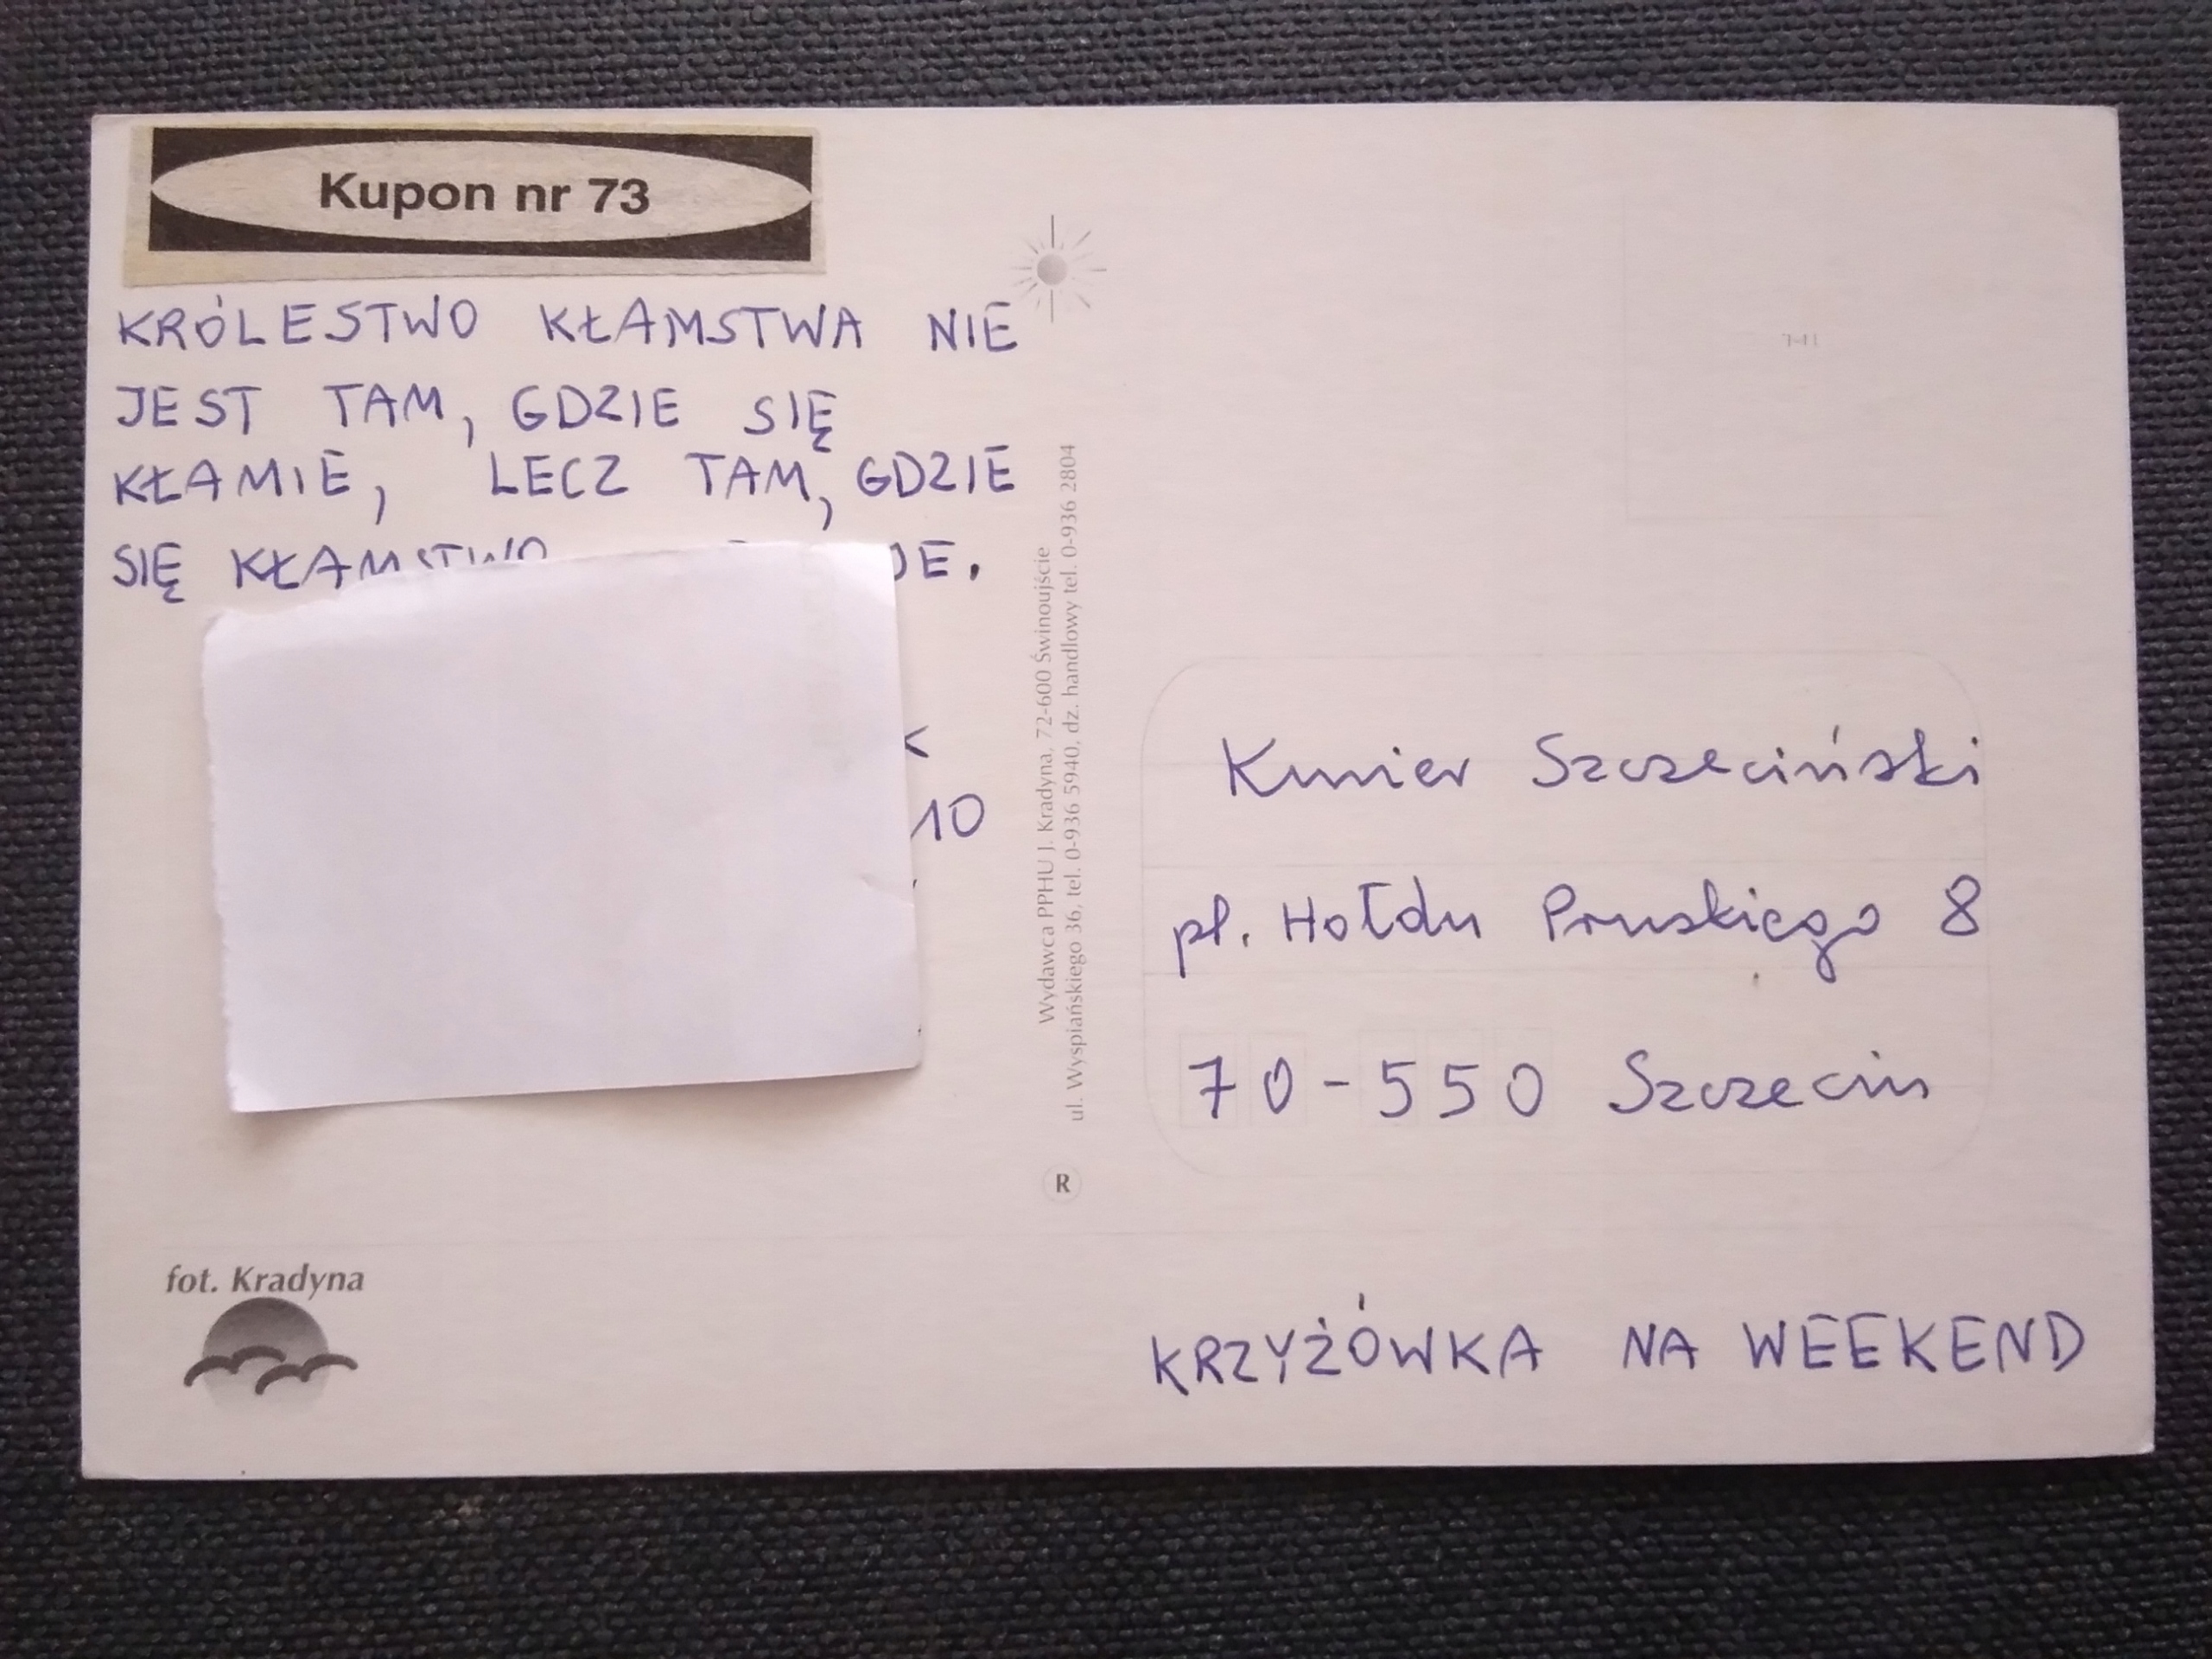 Kupon nr 73
KRÓLESTWO KŁAMSTWA NIE
JEST TAM, GDZIE SIĘ
KŁAMIE, LECZ TAM, GDZIE
SIĘ KŁAMSTWO
10
Wydawca PPHU J. Kradyna, 72-600 Świnoujście
ul. Wyspiańskiego 36, tel. 0-936 5940, dz. handlowy tel. 0-936 2804
R
fot. Kradyna
Kurier Szczeciński
pl. Hołdu Pruskiego 8
70-550 Szczecin
KRZYŻÓWKA NA WEEKEND